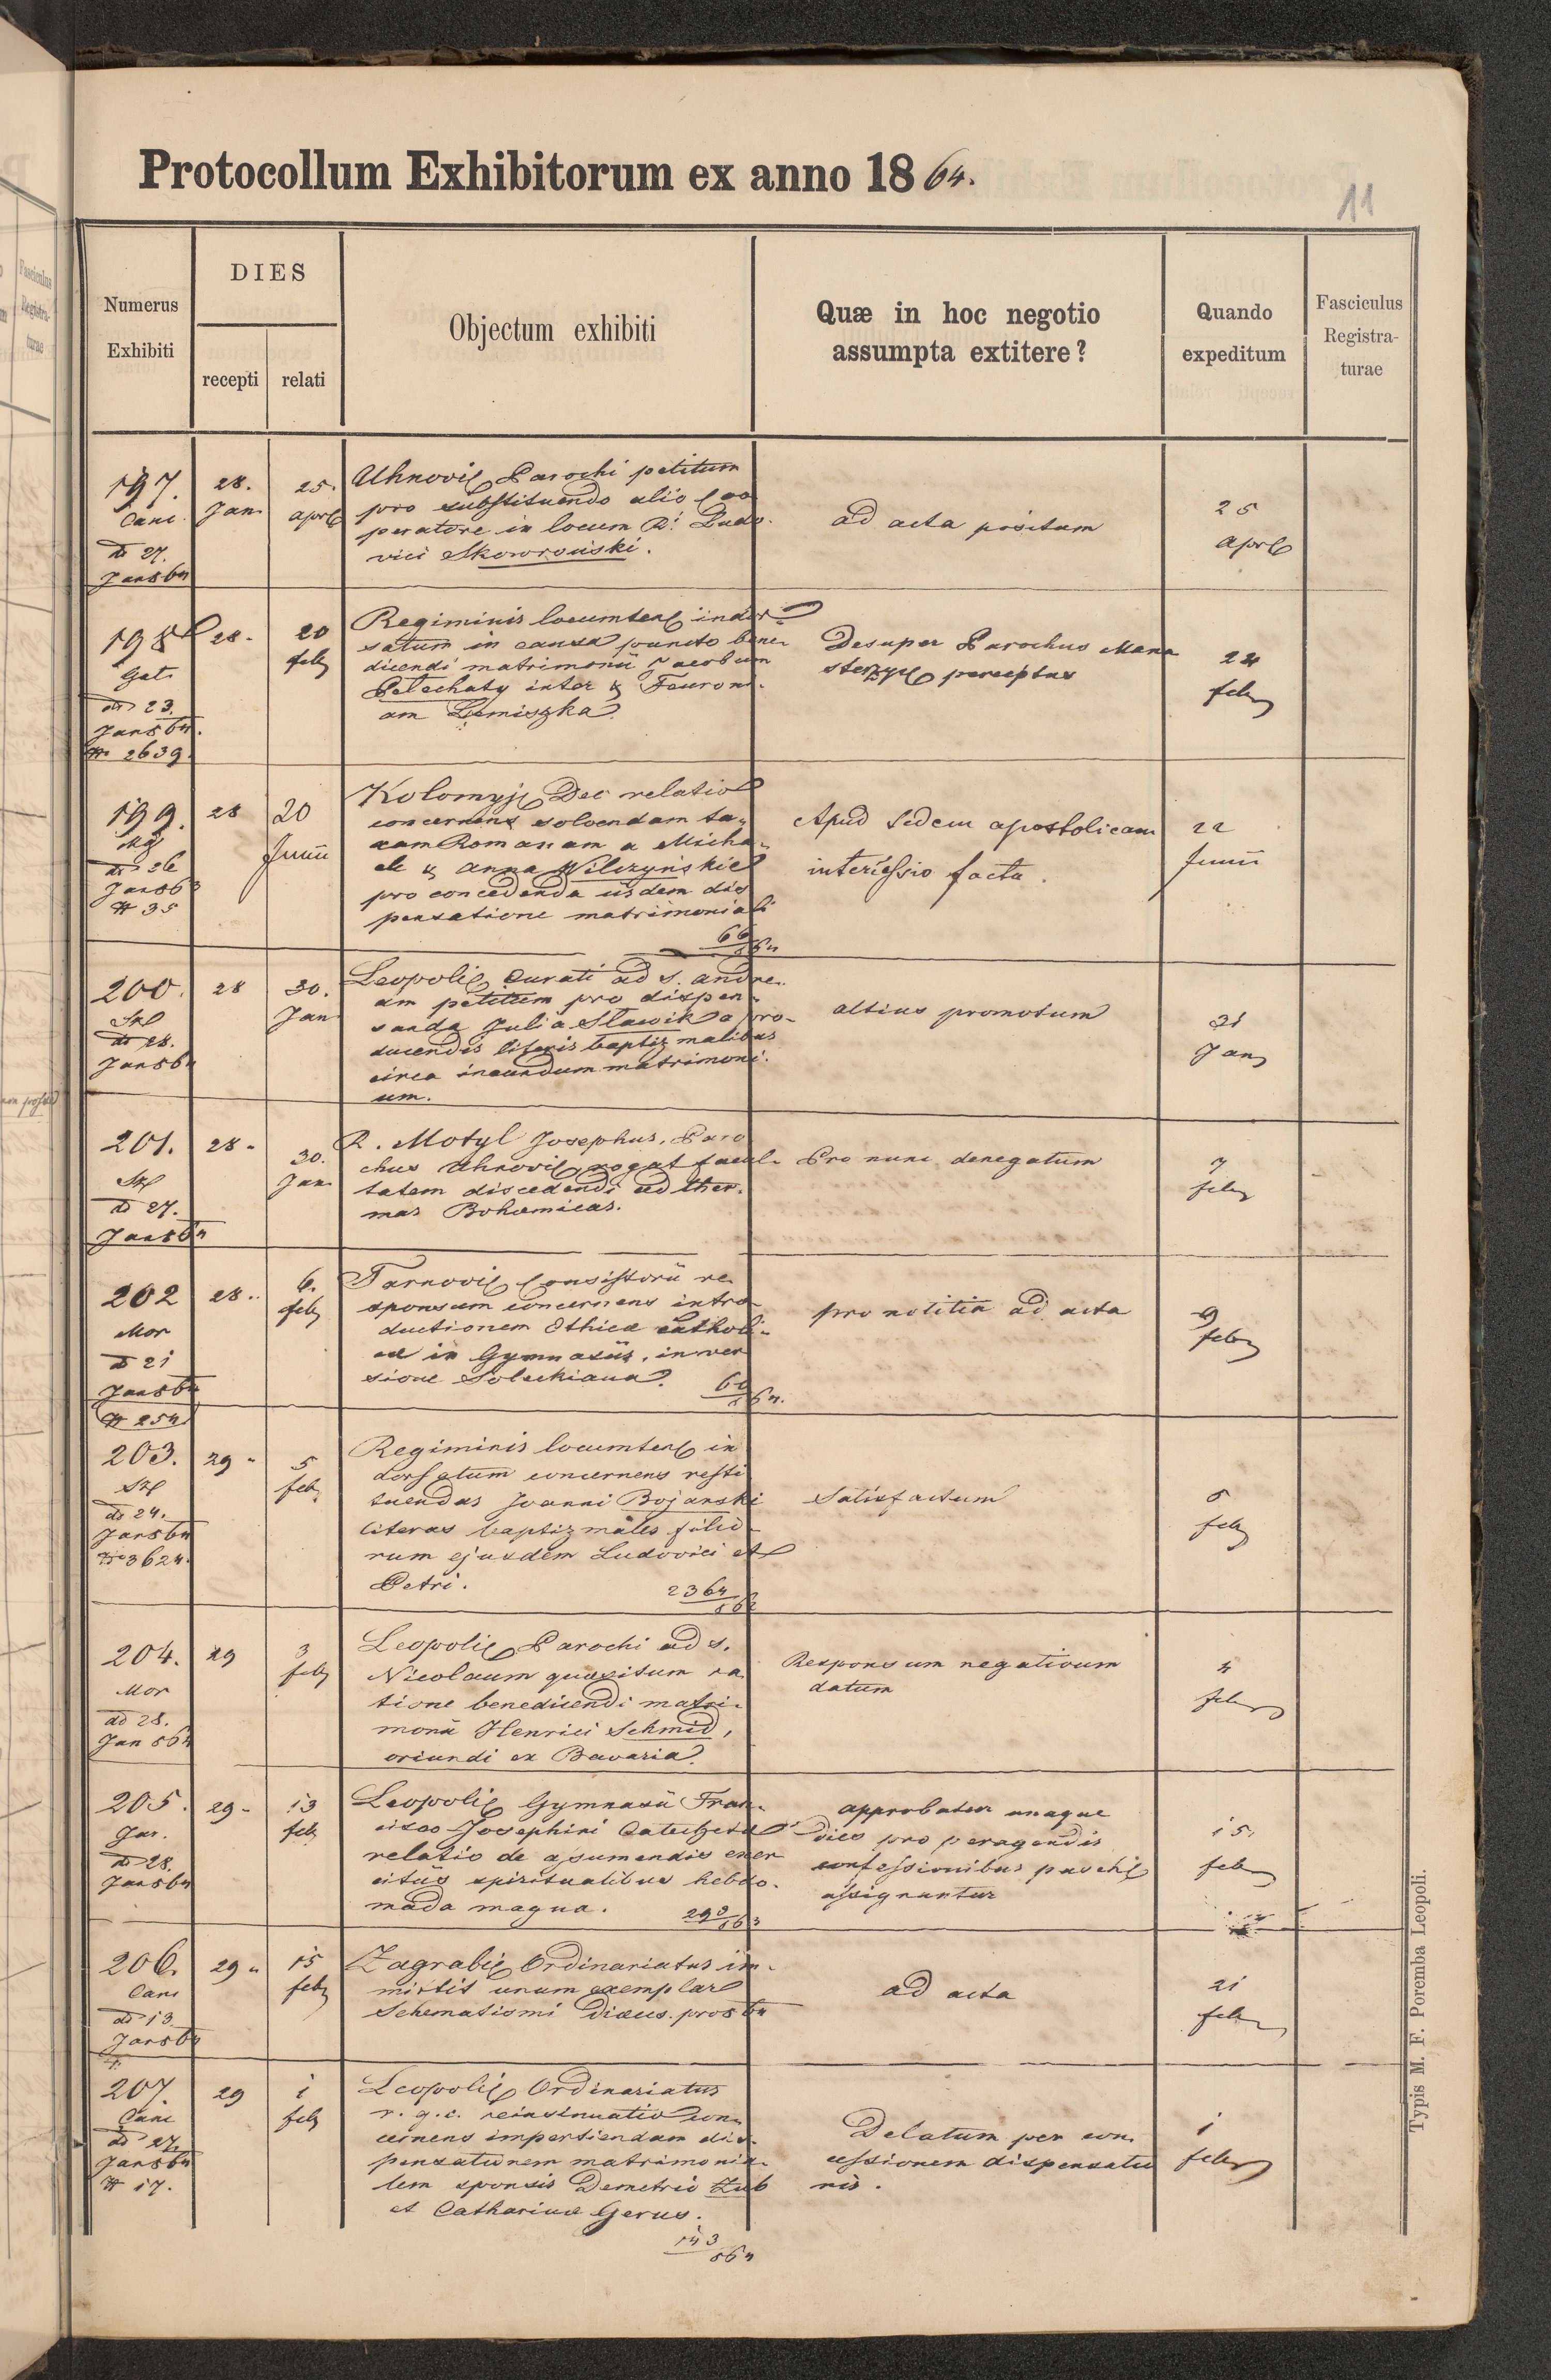 Protocollum Exhibitorum ex anno 1864.
11
Numerus Exhibiti
DIES
recepti
relati
Objectum exhibiti
Quæ in hoc negotio
assumpta extitere?
Quando
expeditum
Fasciculus
Registra-
turae
197.
Canc.
dd 27.
Jan 864
28.
Jan
25.
apr
Uhnovię Parochi petitum
pro substituendo alio Coo
peratore in locum R. Ludo-
vici Skowroński.
ad acta positum
25
apr
198
Gat.
dd 23.
Jan 864.
# 2639.
28.
20
feb
Regiminis locumten. indor-
satum in causa puncto bene-
dicendi matrimonii Jacobum
Pelechaty inter & Fewroni-
am Lemiszka
Desuper Parochus Mona
sterzyę perceptus
24
feb
199.
dd 26
Jan 86
# 35
28
20
Junii
Kolomyję Dec relatio
concernens solvendam ta-
xam Romanam a Micha-
ele & Anna Wilczyńskie
pro concedenda iisdem dis
pensatione matrimoniali
66/864
Apud Sedem apostolicam
intercessio facta.
22
Junii
200.
dd 28.
Jan 864
28
30.
Jan
Leopolię Curati ad S. Andre-
am petitum pro dispen-
sanda Julia Slawik a pro-
ducendis literis baptizmalibus
circa ineundum matrimoni-
um.
altius promotum
31
Jan
201.
dd 27.
Jan 864
28.
30.
Jan
R. Motyl Josephus, Paro
chus Uhnovię rogat facul-
tatem discedendi ad ther-
mas Bohœmicas.
Pro nunc denegatum
7
feb
202
Mor
dd 21
Jan 864
# 254
28.
6.
feb
Tarnovię Consistorii re
sponsum concernens intro-
ductionem Ethicæ catholi-
cæ in Gymnasiis, in ver
sione Soleckiana.
60/864.
pro notitia ad acta
9
feb
203.
dd 24.
Jan 864
# 3624.
29.
5
feb
Regiminis locumten. in
dorsatum concernens resti
tuendas Joanni Bojarski
literas baptizmales filio-
rum ejusdem Ludovici et
Petri.
2364/862
Satisfactum
5
feb
204.
Mor
dd 28.
Jan 864
29
3
feb
Leopolię Parochi ad S.
Nicolaum quæsitum ra
tione benedicendi matri-
monii Henrici Schmid,
oriundi ex Bavaria.
Responsum negativum
datum
4
feb
205.
Jur.
dd 28.
Jan 864
29.
13
feb
Leopolię Gymnasii Fran-
cisco Josephini Catechetæ
relatio de assumendis exer
citiis spiritualibus hebdo-
mada magna.
293/863
approbatur unaque
dies pro peragendis
confessionibus paschę
assignantur
15.
feb
206.
Canc
dd 13.
Jan 864
29.
15
feb
Zagrabię Ordinariatus im-
mittit unum exemplar
Schematismi Diæces. pro 864
ad acta
21
feb
207.
Canc
dd 27.
Jan 864
# 17.
29
1
feb
Leopolię Ordinariatus
r. g. c. reinsinuatio con-
cernens impertiendam dis-
pensationem matrimonia-
lem sponsis Demetrio Zub
et Catharinæ Gerus.
143/864
Delatum per con-
cessionem dispensatio
nis.
1
feb
Typis M. F. Poremba Leopoli.